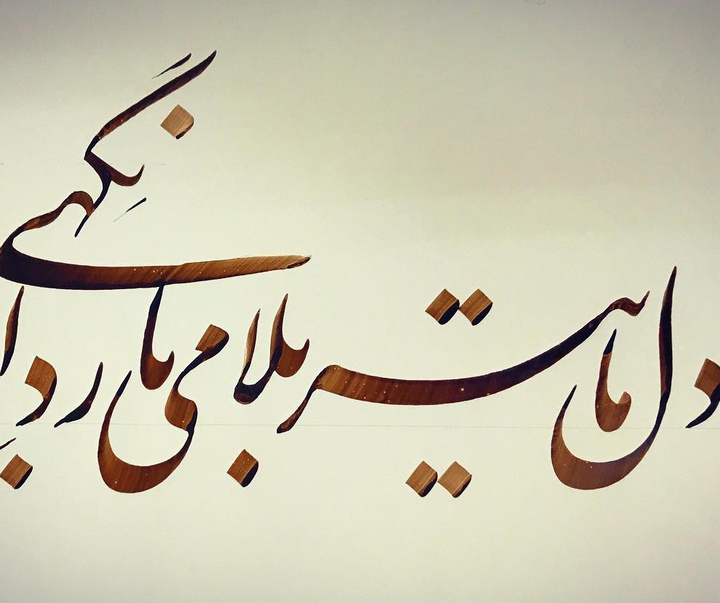 دل ما تیر بلا می بارد نگهی